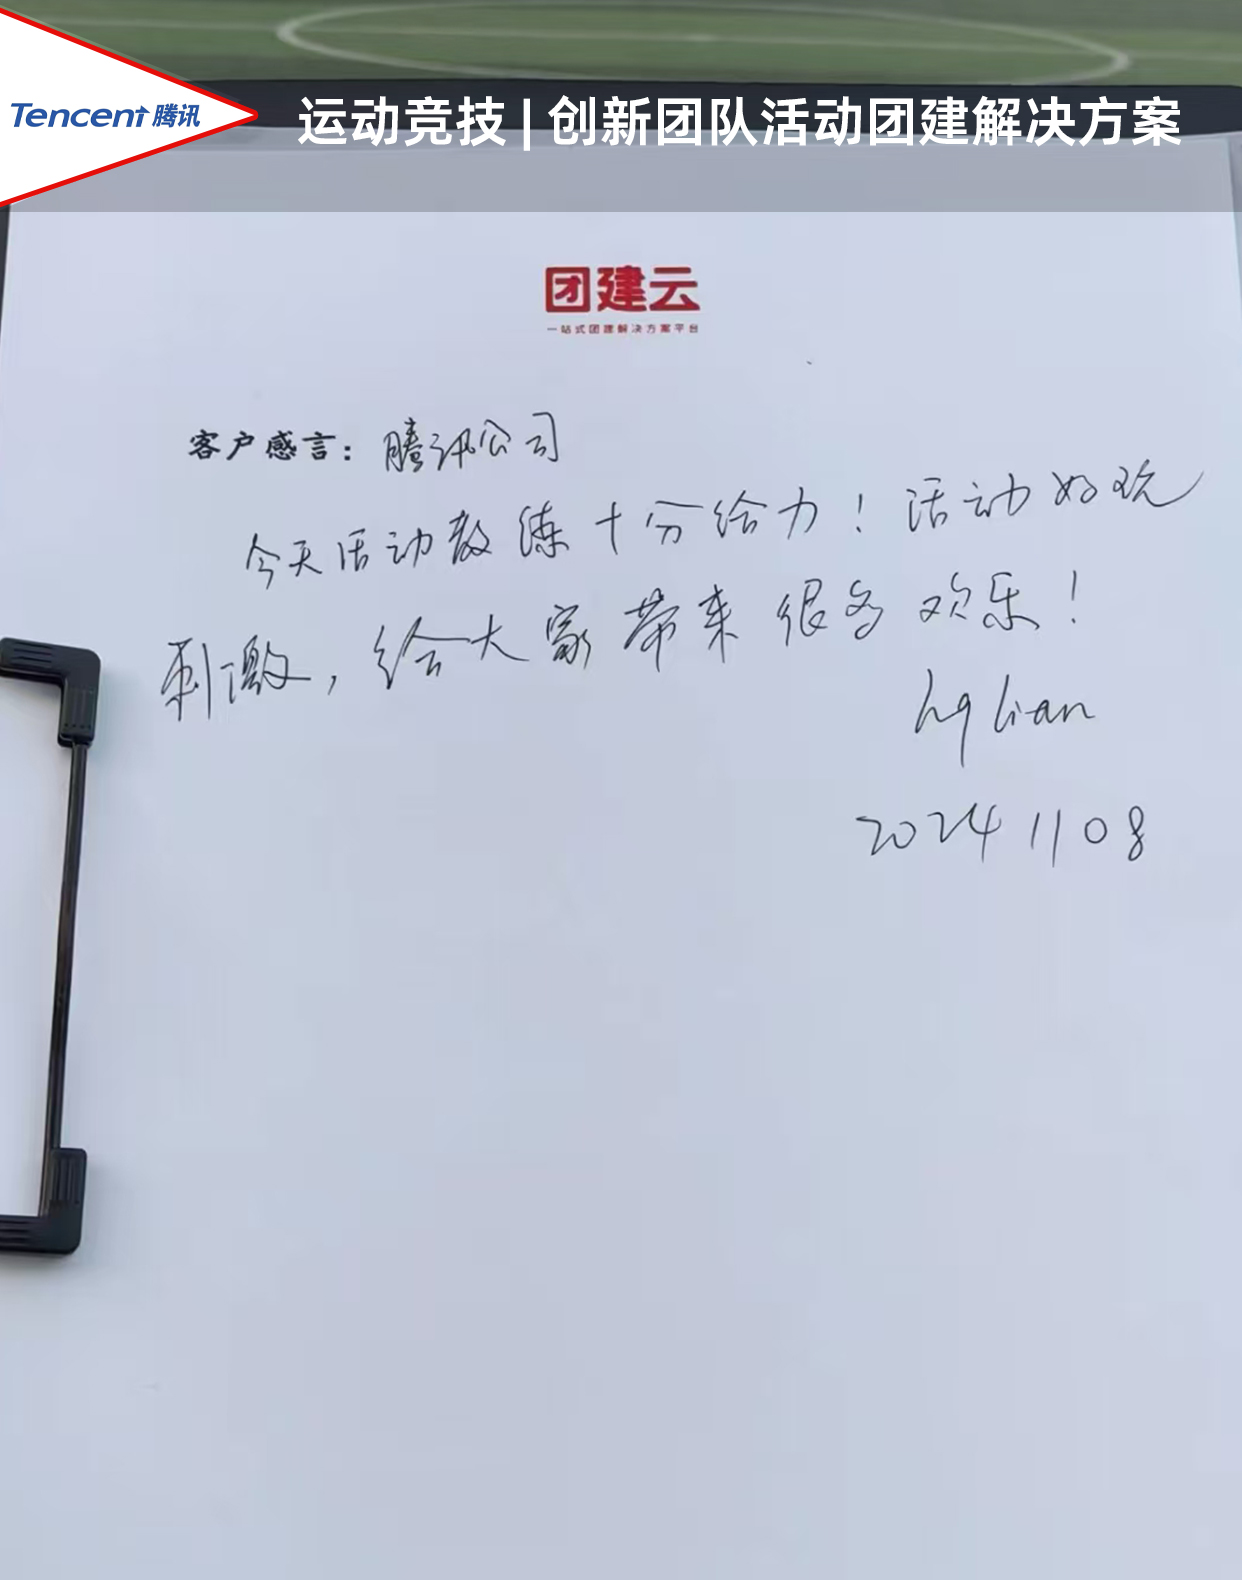 Tencent 腾讯
运动竞技 | 创新团队活动团建解决方案
团建云
一站式团建解决方案平台
客户感言：腾讯公司
今天活动教练十分给力！活动好玩
刺激，给大家带来很多欢乐！
hqlian
20241108